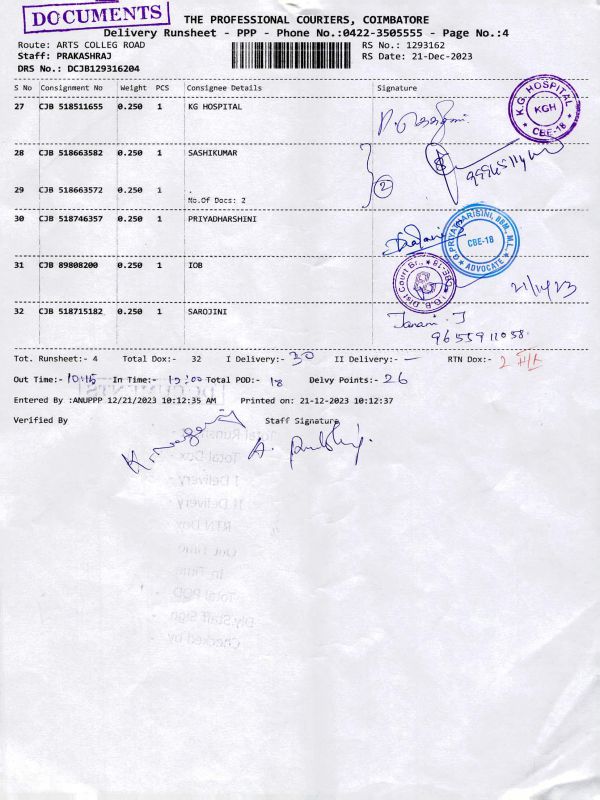 DOCUMENTS
THE PROFESSIONAL COURIERS, COIMBATORE
Delivery Runsheet - PPP - Phone No.:0422-3505555 - Page No.:4
Route: ARTS COLLEG ROAD RS No.: 1293162
Staff: PRAKASHRAJ RS Date: 21-Dec-2023
DRS No.: DCJB129316204
S No Consignment No Weight PCS Consignee Details Signature
27 CJB 518511655 0.250 1 KG HOSPITAL
K.G. HOSPITAL KGH CBE-18
28 CJB 518663582 0.250 1 SASHIKUMAR
29 CJB 518663572 0.250 1 .
No.Of Docs: 2
2
30 CJB 518746357 0.250 1 PRIYADHARSHINI
CBE-18 ADVOCATE
31 CJB 89808200 0.250 1 IOB
21/12/23
32 CJB 518715182 0.250 1 SAROJINI
Janani. J
9655911038
Tot. Runsheet:- 4 Total Dox:- 32 I Delivery:- 30 II Delivery:- — RTN Dox:- 2
Out Time:- 10:15 In Time:- 17:00 Total POD:- 18 Delvy Points:- 26
Entered By :ANUPPP 12/21/2023 10:12:35 AM Printed on: 21-12-2023 10:12:37
Verified By Staff Signature